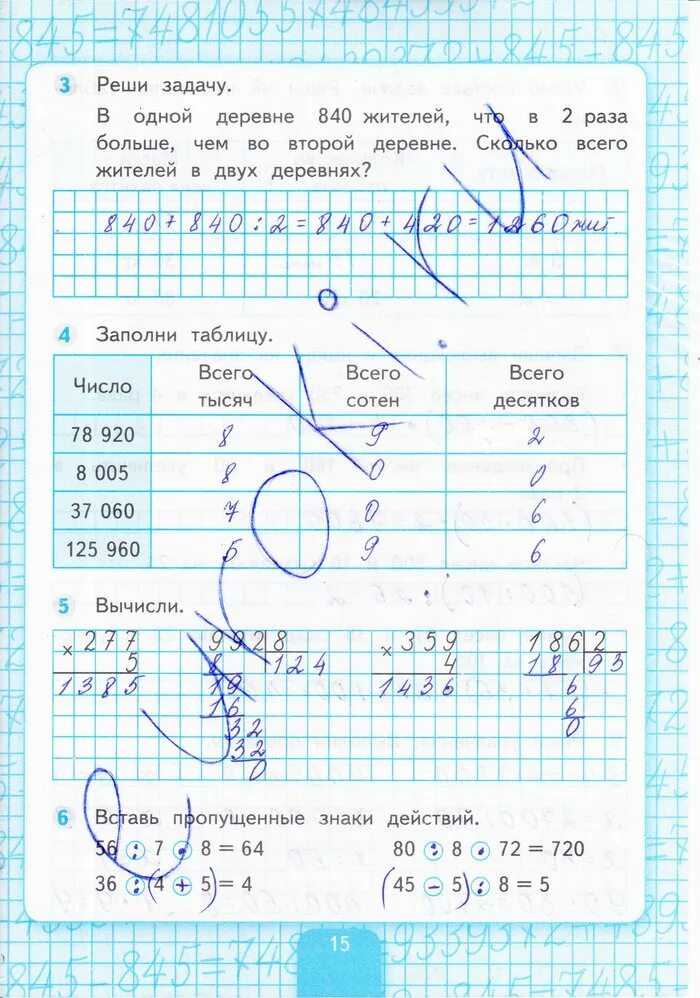 3 Реши задачу.
В одной деревне 840 жителей, что в 2 раза
больше, чем во второй деревне. Сколько всего
жителей в двух деревнях?
840 + 840 : 2 = 840 + 420 = 1260 жит.
4 Заполни таблицу.
Число Всего тысяч Всего сотен Всего десятков
78 920 8 9 2
8 005 8 0 0
37 060 7 0 6
125 960 5 9 6
5 Вычисли.
× 277 992 8 × 359 186 2
5 8 124 4 18 93
1385 19 1436 6
16 6
32 0
32
0
6 Вставь пропущенные знаки действий.
56 : 7 · 8 = 64 80 : 8 · 72 = 720
36 : (4 + 5) = 4 (45 – 5) : 8 = 5
15